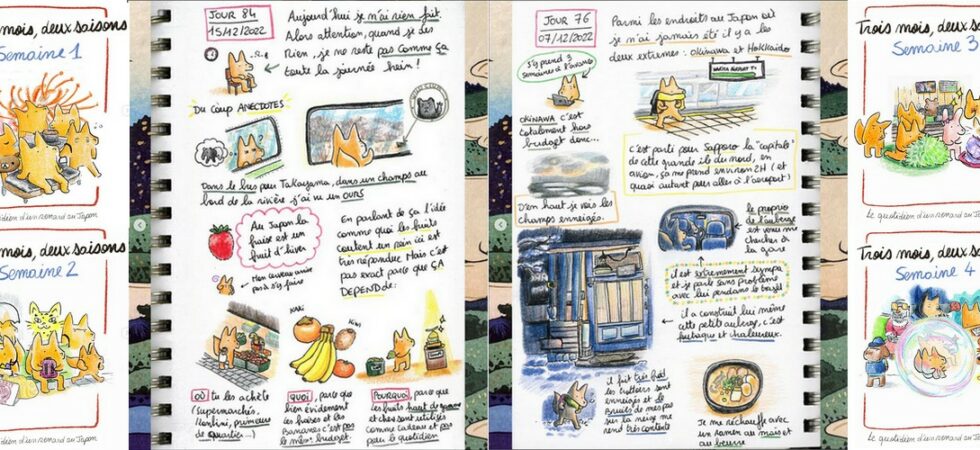 mois, deux saisons
Semaine 1
idien d'un renard au Japon
mois, deux saisons
Semaine 2
idien d'un renard au Japon
JOUR 84
15/12/2022
Aujourd'hui je n'ai rien fait.
Alors attention, quand je dis
Rien, je ne reste pas comme ça
toute la journée hein !
Du coup ANECDOTES
Dans le bus pour Takayama, dans un champs au
bord de la rivière j'ai vu un OURS
Au Japon la
fraise est un
fruit d'hiver
Mon cerveau arrive
pas à s'y faire
En parlant de ça l'idée
comme quoi les fruits
coutent un rein ici est
très répandue. Mais c'est
pas exact parce que ÇA
DEPEND de :
KAKI
OÙ tu les achète
(supermarchés,
Konbini, primeurs
de quartier...)
QUOI, parce que
bien évidement
les fraises et les
Bananes c'est pas
le même budget.
POURQUOI, parce que
les fruits haut de gamme
et chers sont utilisés
comme cadeau et pas
pour le quotidien
JOUR 76
07/12/2022
Parmi les endroits au Japon où
je n'ai jamais été il y a les
deux extrêmes : okinawa et HOKKAIDO
s'y prend 3
semaines à l'avance
OKINAWA c'est
totalement hors
budget donc...
C'est parti pour Sapporo la "capitale"
de cette grande île du nord, en
avion, ça me prend environ 2H (et
quasi autant pour aller à l'aeroport)
D'en haut je vois les
champs enneigés.
le proprio
de l'auberge
est venu me
chercher à
la gare
il est extrêmement sympa
et je parle sans problème
avec lui pendant le trajet
il a construit lui même
cette petite auberge, c'est
rustique et chaleureux.
il fait très froid
les trottoirs sont
enneigés et le
bruits de mes pas
sur la neige me
rend très contente
Je me réchauffe avec
un ramen au maïs et
au beurre
Trois mois, deux sais
Semaine 3
Le quotidien d'un renard au Japon
Trois mois, deux sais
Semaine 4
Le quotidien d'un renard au Japon